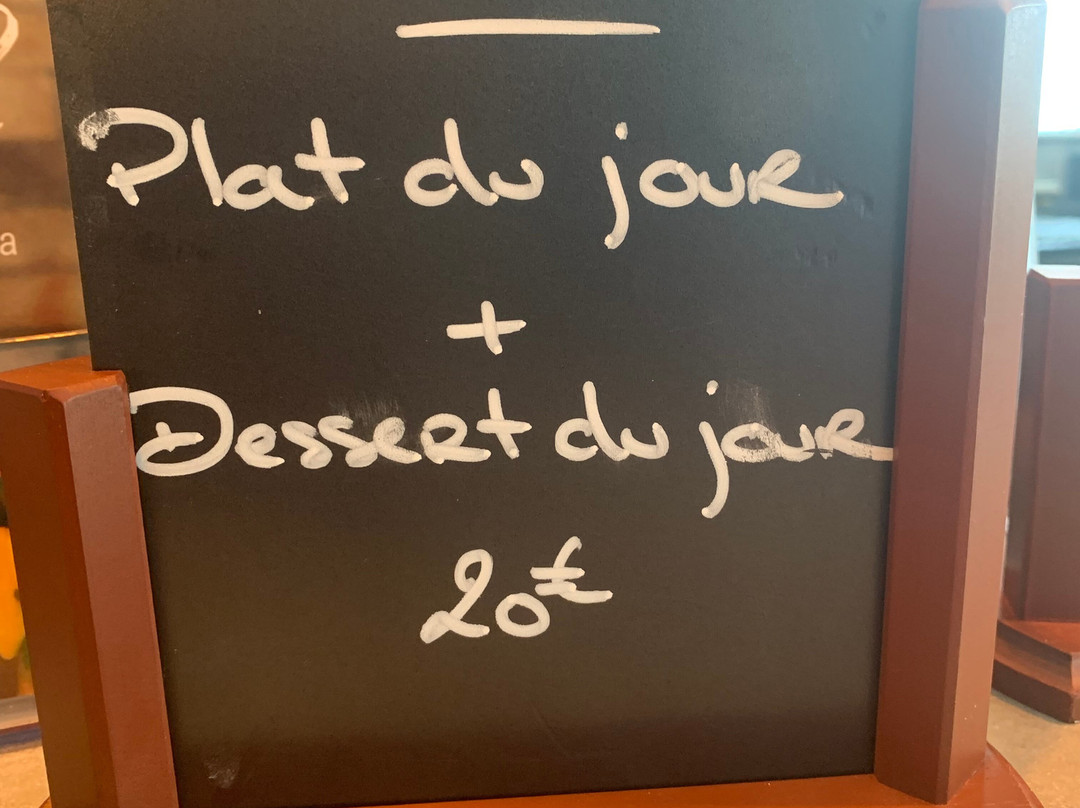 Plat du jour
+
Dessert du jour
20€
a